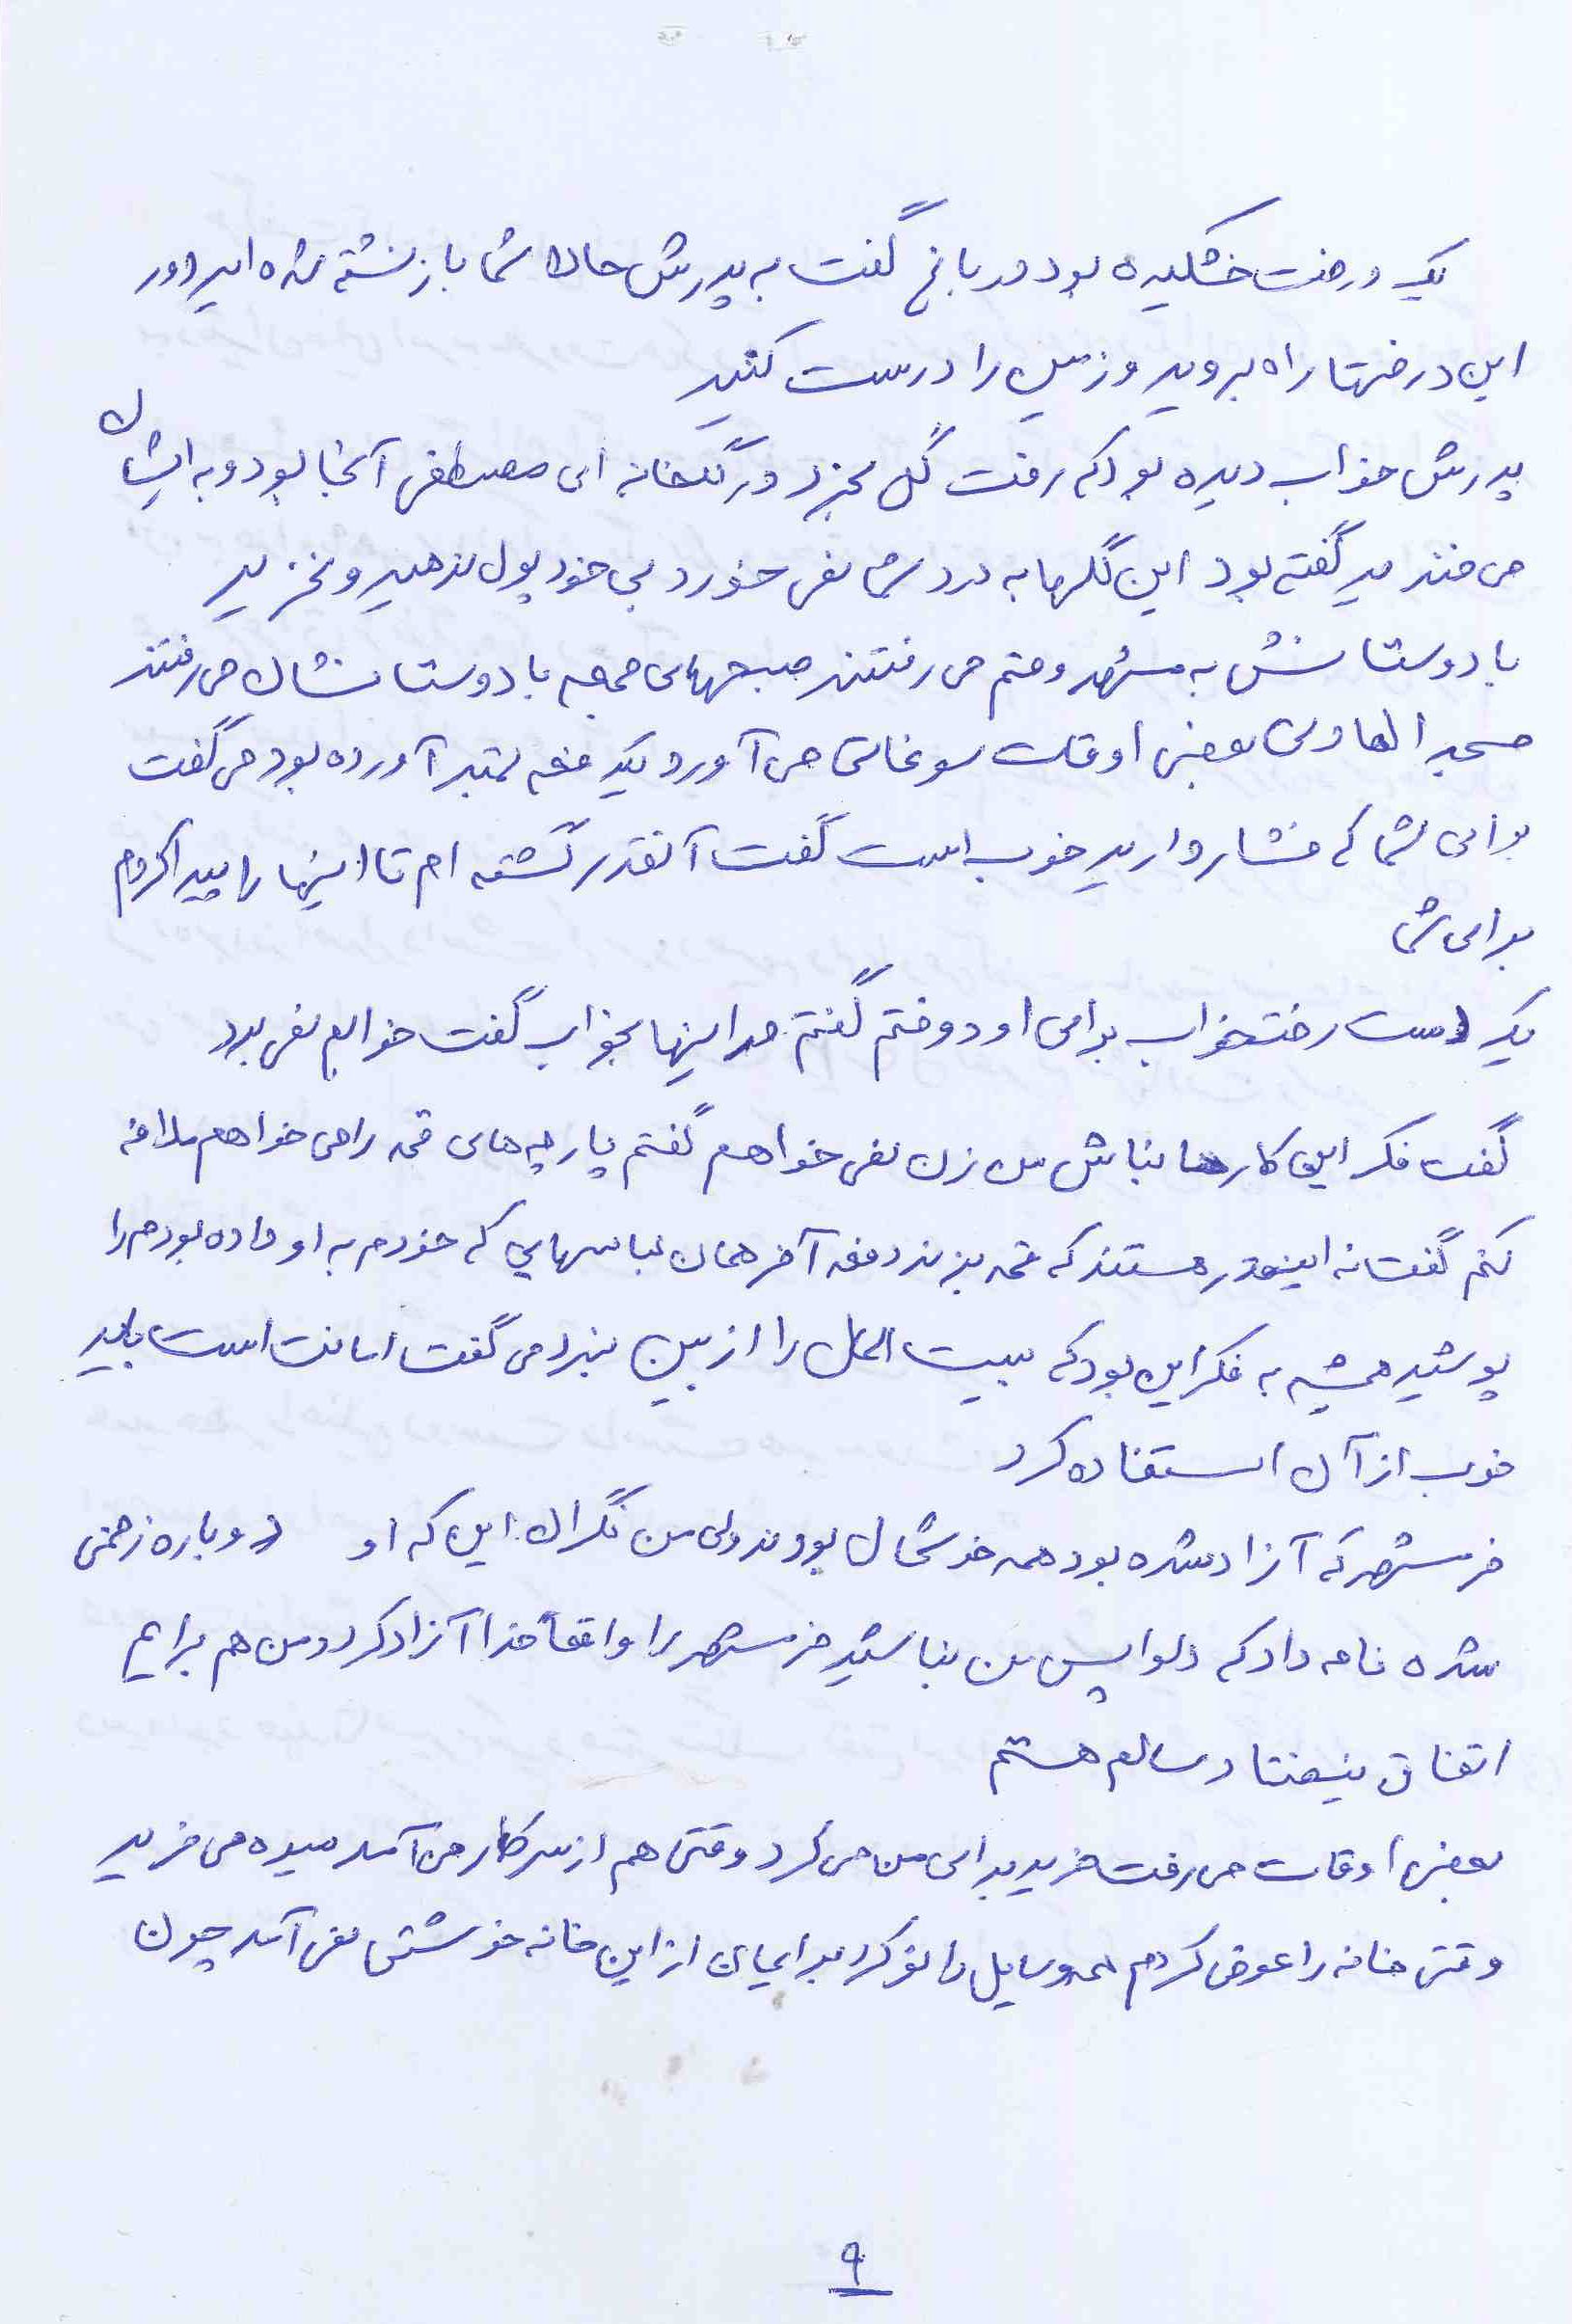 یک درخت خشکیده بود در باغ گفت به پدرش حالا شما بازنشته شده اید دور
این درختها راه بروید و زمین را درست کنید
پدرش خواب دیده بود که رفت گل بخرد در گلخانه ای مصطفی آنجا بود و به ایشان
می گفته بود این گلها به درد شما نمی خورد بی خود پول ندهید و نخرید
با دوستانش به مشهد و قم می رفتند صبحهای جمعه با دوستانشان می رفتند
مسجد الهادی بعضی اوقات سوغاتی می آورد یک دفعه آورده بود می گفت
برای شما که فشار دارید خوب است گفت آنقدر گشته ام تا اینها را پیدا کردم
برای شما
یک دست رختخواب برای او دوختم گفتم رو اینها بخواب گفت خوابم نمی برد
گفت فکر این کارها نباش من زن نمی خواهم گفتم پارچه های را می خواهم ملافه
کنم گفت نه اینقدر هستند که بزنند دفعه آخر همان لباسهایی که خودم به او داده بودم را
پوشید همیشه به فکر این بود که بیت المال را از بین نبرد می گفت امانت است باید
خوب از آن استفاده کرد
خرمشهر که آزاد شده بود همه خوشحال بودند ولی من نگران این که او دوباره زخمی
شده نامه داد که دلواپس من نباشید خرمشهر را واقعاً خدا آزاد کرد و من هم برایم
اتفاقی نیفتاد و سالم هستم
بعضی اوقات می رفت خرید برای من می کرد وقتی هم از سر کار می آمد میوه می خرید
وقتی خانه را عوض کردم همه وسایل را نو کرد برایمان از این خانه خوشش نمی آمد چون
۹